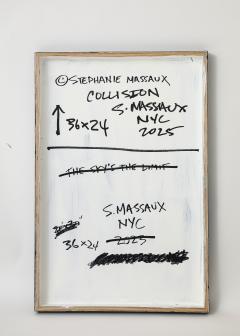 ©STEPHANIE MASSAUX
COLLISION
S. MASSAUX
36x24 NYC
2025
THE SKY'S THE LIMIT
S. MASSAUX
NYC
36x24 2025